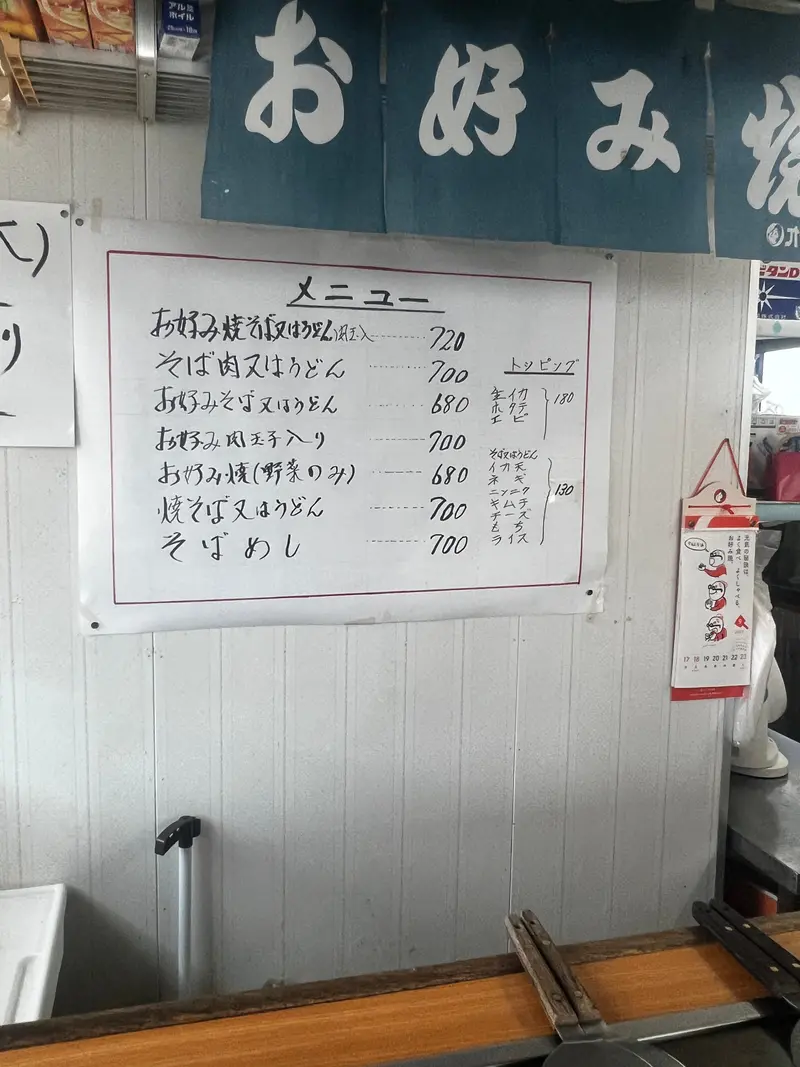 アルミ
ホイル
お好み焼
メニュー
お好み焼そば又はうどん肉玉入 720
そば肉又はうどん 700
お好みそば又はうどん 680
お好み肉玉子入り 700
お好み焼(野菜のみ) 680
焼そば又はうどん 700
そばめし 700
トッピング
生イカ
ホタテ
エビ
180
そば又はうどん
イカ天
ネギ
ニンニク
キムチ
チーズ
もち
ライス
130
元気の秘訣は、
よく食べ、よくしゃべる。
お好み焼。
17 18 19 20 21 22 23